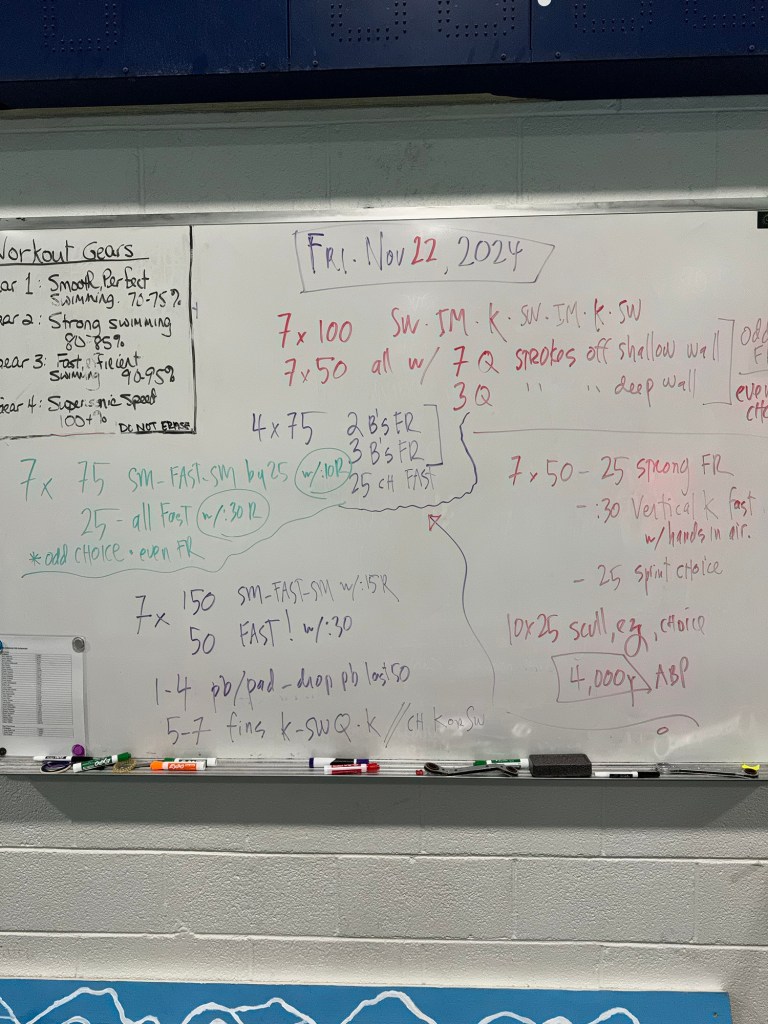 Workout Gears
ear 1: Smooth, Perfect
swimming. 70-75%
ear 2: Strong swimming
80-85%
Gear 3: Fast, Efficient
swimming 90-95%
Gear 4: Supersonic Speed
100+%
DO NOT ERASE
FRI. Nov 22, 2024
7 x 100 SW. IM. K. SW. IM. K. SW
7 x 50 all w/ 7 Q strokes off shallow wall
3 Q " " deep wall
odd
FR
even
4 x 75 2 B's FR
3 B's FR
25 CH FAST
7 x 75 SM-FAST-SM by 25 w/:10R
25 - all Fast w/:30R
*odd CHOICE. even FR
7 x 150 SM-FAST-SM w/:15R
50 FAST! w/:30
1-4 pb/pad-drop pb last 50
5-7 fins K-SWQ.K//CH K or SW
7 x 50 - 25 strong FR
- :30 Vertical K fast
w/hands in air.
- 25 sprint choice
10x25 scull, ez, choice
4,000y ABP